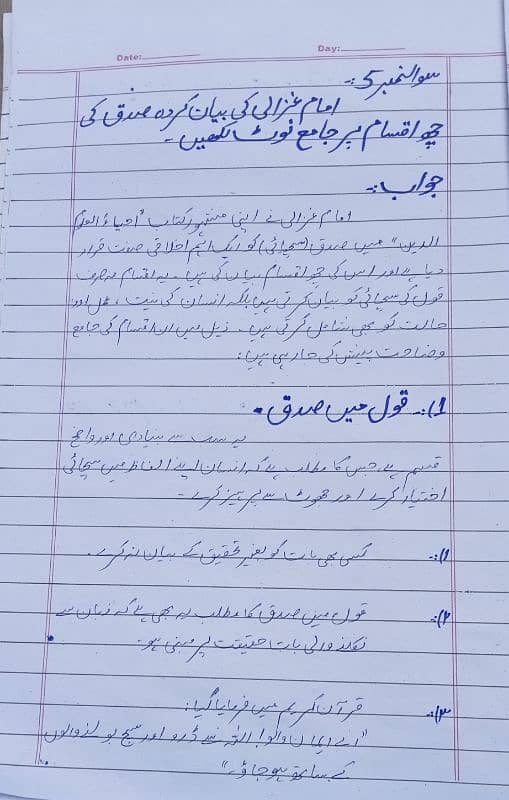 Date:
Day:
سوالنمبر 5:-
امام غزالی کی بیان کردہ صدق کی
چھ اقسام پر جامع نوٹ لکھیں۔
جواب:-
امام غزالی نے اپنی مشہور کتاب "احیاء العلوم
الدین" میں صدق (سچائی) کو ایک اہم اخلاقی صفت قرار
دیا ہے اور اس کی چھ اقسام بیان کی ہیں۔ یہ اقسام نہ صرف
قول کی سچائی کو بیان کرتی ہیں بلکہ انسان کی نیت، عمل اور
حالت کو بھی شامل کرتی ہیں۔ ذیل میں ان اقسام کی جامع
وضاحت پیش کی جا رہی ہیں:
1):- قول میں صدق -
یہ سب سے بنیادی اور واضح
قسم ہے جس کا مطلب ہے کہ انسان اپنے الفاظ میں سچائی
اختیار کرے اور جھوٹ سے پرہیز کرے۔
1):- کسی بھی بات کو بغیر تحقیق کے بیان نہ کرے۔
۲):- قول میں صدق کا مطلب یہ بھی ہے کہ زبان سے
نکلنے والی بات حقیقت پر مبنی ہو۔
۳):- قرآن کریم میں فرمایا گیا:
"اے ایمان والو! اللہ سے ڈرو اور سچ بولنے والوں
کے ساتھ ہو جاؤ۔"